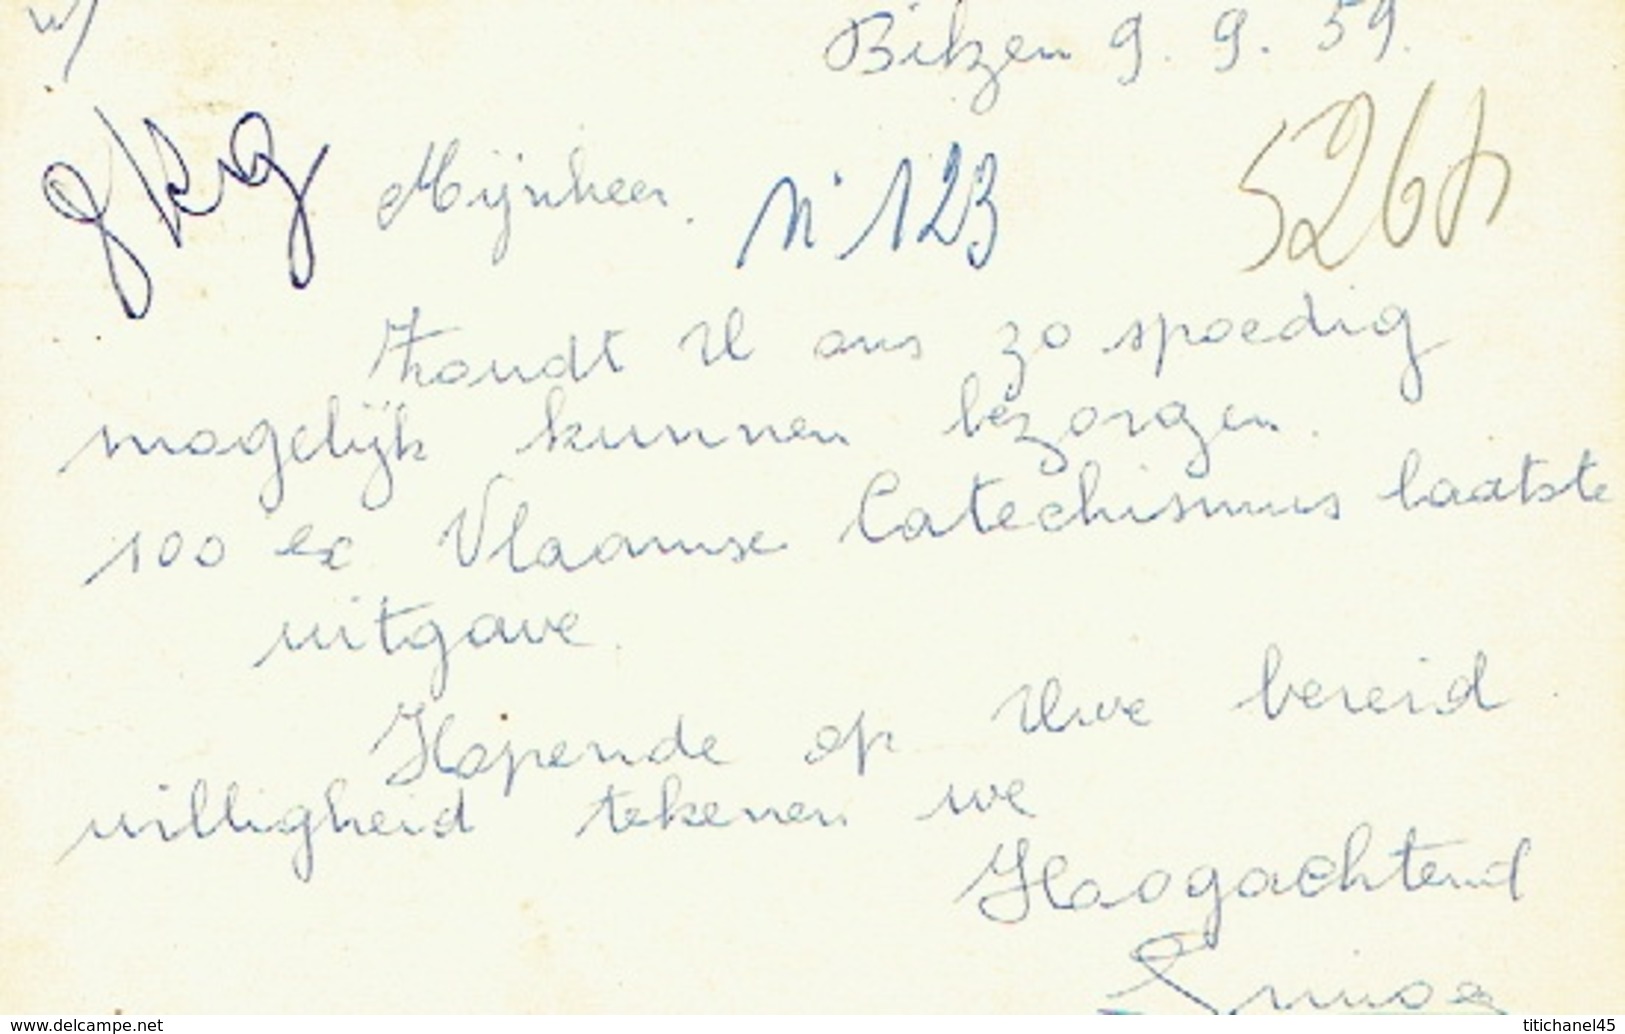 Bilzen 9.9.59.
8kg
Mijnheer.
n° 123
526
Zoudt U ons zo spoedig
mogelijk kunnen bezorgen.
100 ex Vlaamse Catechismus laatste
uitgave.
Hopende op Uwe bereid
willigheid tekenen we
Hoogachtend
www.delcampe.net
titichanel45